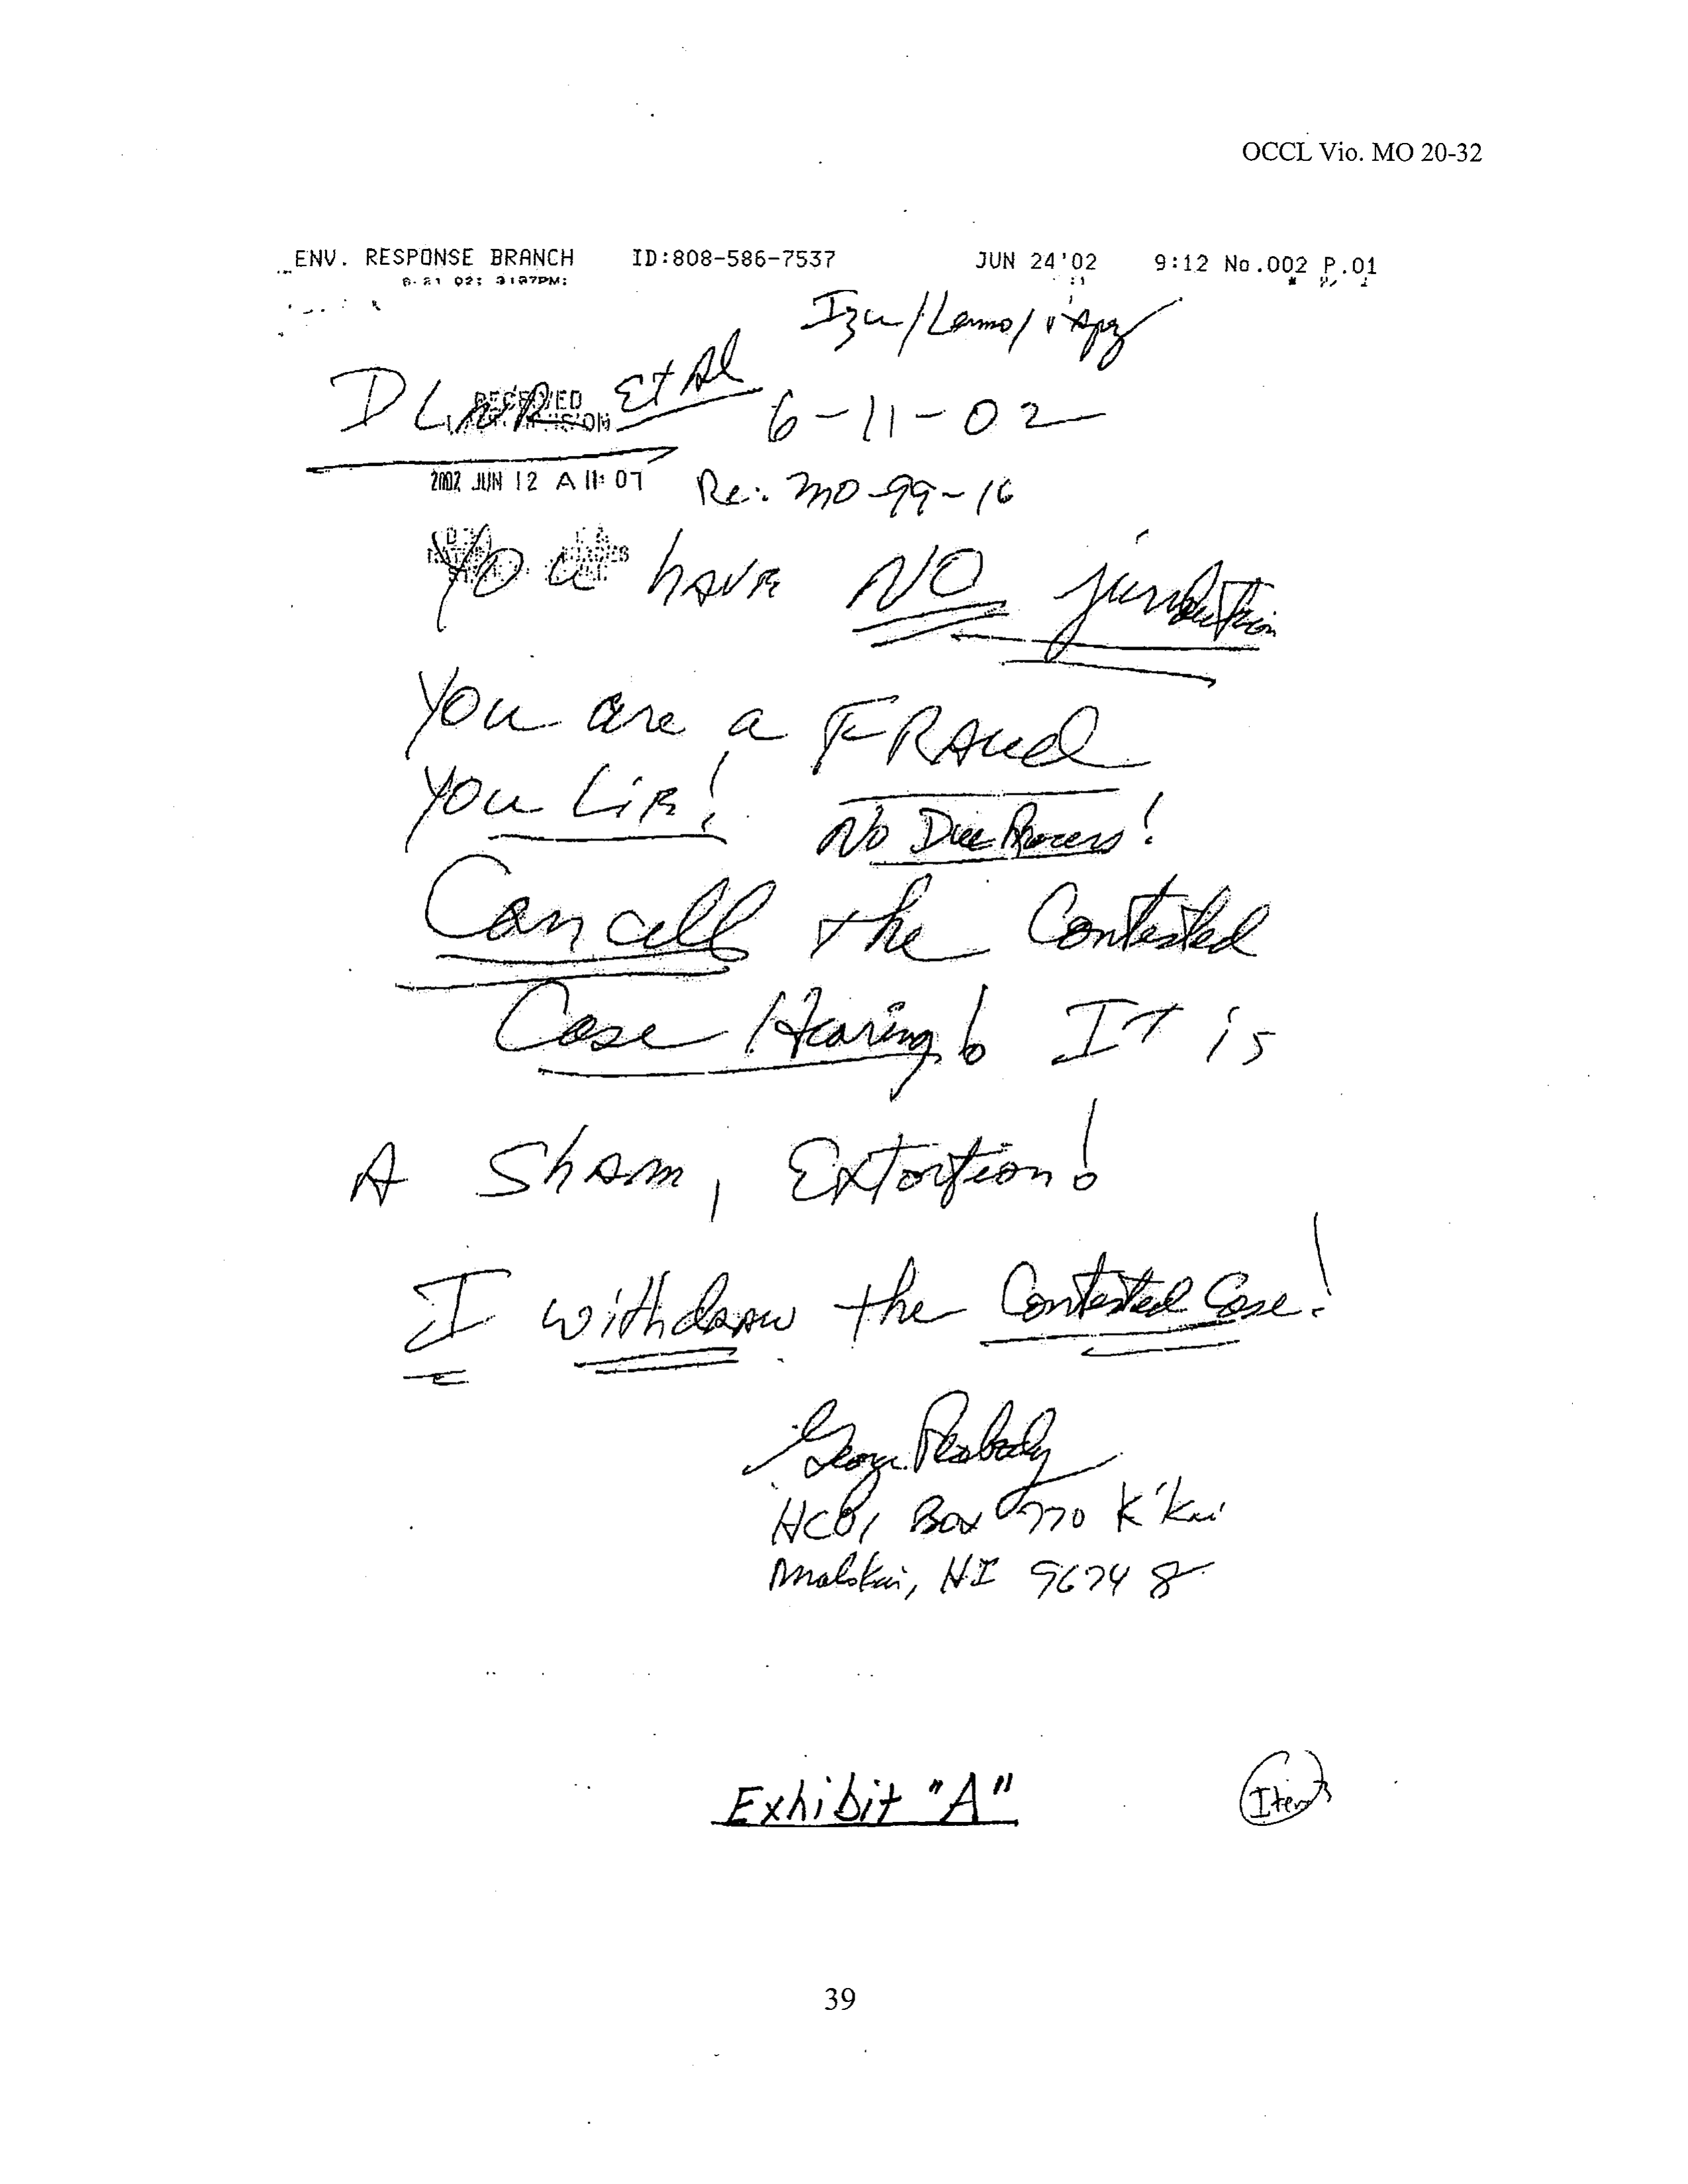 OCCL Vio. MO 20-32
ENV. RESPONSE BRANCH ID:808-586-7537 JUN 24'02 9:12 No.002 P.01
Izu/Lemmo/
DLNR Et Al
RECEIVED
6-11-02
2002 JUN 12 A 11:07
Re: MO-99-16
You have NO jurisdiction
You are a FRAud
You Lie!
No Due Process!
Cancell the Contested
Case Hearing! IT is
A Sham, Extortion!
I withdraw the Contested Case!
George Peabody
HC01 Box 770 K'Kai
Molokai, HI 96748
Exhibit "A"
39